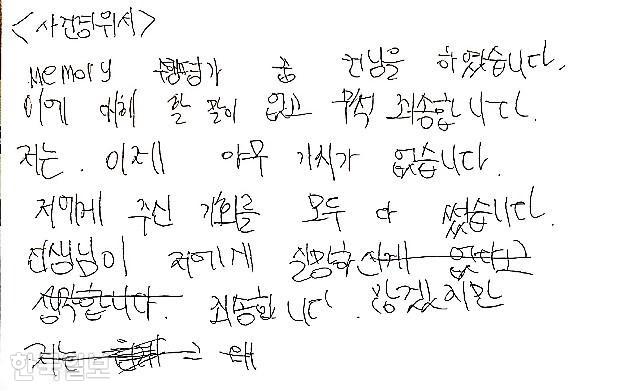 <사건경위서>
memory 수행평가 중 컨닝을 하였습니다.
이에 대해 할 말이 없고 무척 죄송합니다.
저는 이제 아무 가치가 없습니다.
저에게 주신 기회를 모두 다 썼습니다.
선생님이 저에게 실망하신게 없다고
생각합니다. 죄송합니다. 않겠지만
저는
한국일보